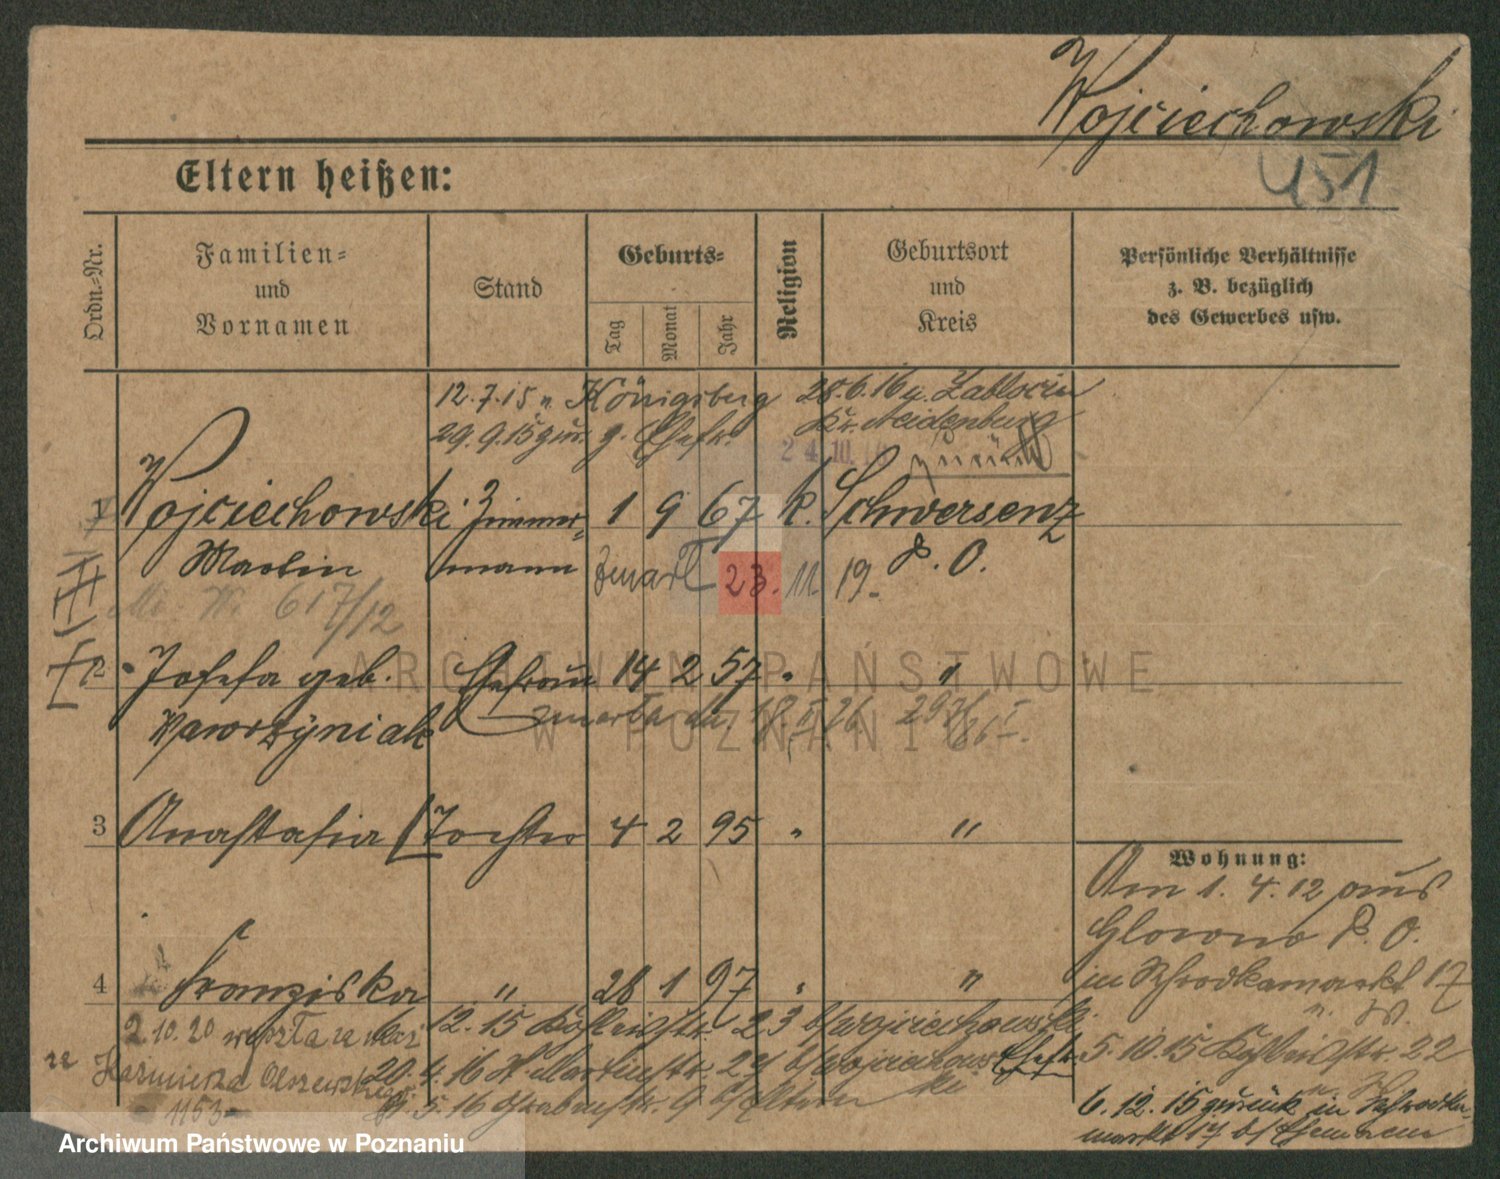 Wojciechowski
451
Eltern heißen:
Ordn.-Nr.
Familien-
und
Vornamen
Stand
Geburts-
Tag
Monat
Jahr
Religion
Geburtsort
und
Kreis
Persönliche Verhältnisse
z. B. bezüglich
des Gewerbes usw.
12.7.15 n. Königsberg 28.6.16 n.
29.9.15 zur. z. Ehefr. Kr. Neidenburg
24.10.
zurück
1 Wojciechowski Zimmer- 1 9 67 k. Schwersenz
Martin mann zmarł 23. 11. 19. P. O.
617/12
2 Josefa geb. Ehefrau 14 2 57 " "
Wawrzyniak zmarła
3 Anastasia Tochter 4 2 95 " "
Wohnung:
Am 1. 4. 12 aus
Glowno P. O.
4 Franziska " 28 1 97 " "
in Schrodkamarkt 17
2.10.20 wyszła za mąż
6. 12. 15 23 b/Wojciechowski
Kazimierza Olszewskiego
1153
20. 4. 16 St. Martinstr. b/Wojciechowski Ehefr.
5. 16 Grabenstr. 9 b/Eltern
5. 10. 15 22
6. 12. 15 zurück n. Schrodka-
markt 17 b/Ehemann
ARCHIWUM PAŃSTWOWE
W POZNANIU
Archiwum Państwowe w Poznaniu